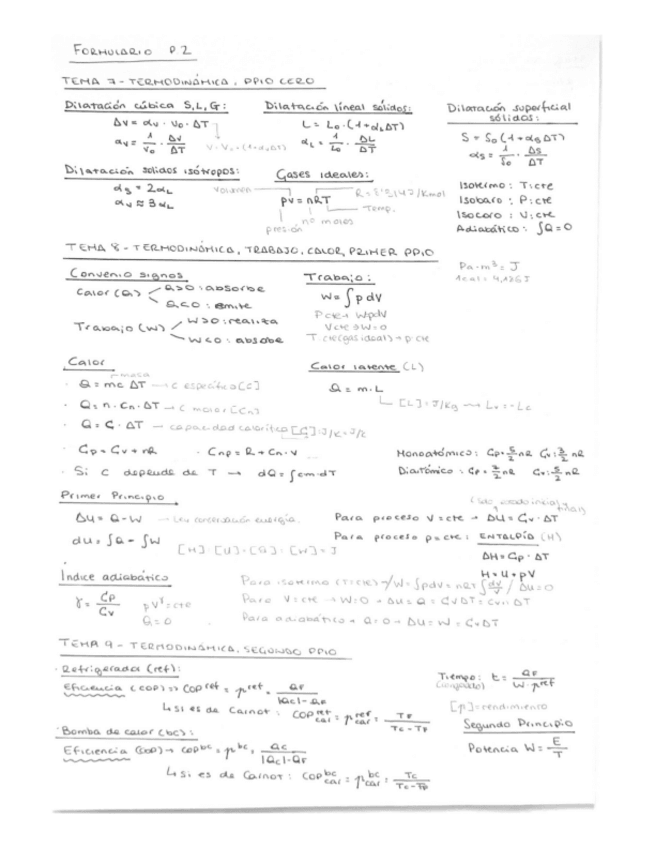 FORMULARIO P.2
TEMA 7 - TERMODINÁMICA, PPIO CERO
Dilatación cúbica S,L,G:
ΔV = αv · V0 · ΔT
αv = 1/V0 · ΔV/ΔT
V = V0 · (1+αvΔT)
Dilatación lineal sólidos:
L = L0 · (1+αLΔT)
αL = 1/L0 · ΔL/ΔT
Dilatación superficial sólidos:
S = S0 (1+αsΔT)
αs = 1/S0 · ΔS/ΔT
Dilatación solidos isótropos:
αs = 2αL
αv ≈ 3αL
Gases ideales:
volumen
PV = nRT
Temp.
nº moles
presión
Isotermo : T:cte
Isobaro : P:cte
Isocoro : V:cte
Adiabático : ∫Q=0
TEMA 8 - TERMODINÁMICA, TRABAJO, CALOR, PRIMER PPIO
Convenio signos
Calor (Q) Q>0 : absorbe
Q<0 : emite
Trabajo (W) W>0 : realiza
W<0 : absobe
Trabajo:
W = ∫ p dV
Vcte → W=0
Pa·m³ = J
Calor
masa
· Q = mc ΔT → c específico [c]
· Q = n · Cn · ΔT → c molar [Cn]
· Q = C · ΔT → capacidad calorífica
· Cp = Cv + nR · Cnp = R + Cn·v
· Si c depende de T → dQ = ∫cm·dT
Calor latente (L)
Q = m·L
[L] = J/Kg → Lv = -Lc
Monoatómico : Cp = 5/2 nR Cv = 3/2 nR
Diatómico : Cp = 7/2 nR Cv = 5/2 nR
Primer Principio
ΔU = Q - W → Ley conservación energía.
dU = ∫Q - ∫W
[H] : [U] = [Q] : [W] = J
Para proceso V=cte → ΔU = Cv · ΔT
Para proceso p=cte : ENTALPÍA (H)
ΔH = Cp · ΔT
H = U + pV
Índice adiabático
γ = Cp/Cv
pVγ = cte
Q = 0
Para isotermo (T=cte) → W = ∫pdV = nRT ∫dV/V / ΔU = 0
Para V = cte → W=0 → ΔU = Q = CvΔT = cvnΔT
Para adiabático → Q=0 → ΔU = W = CvΔT
TEMA 9 - TERMODINÁMICA, SEGUNDO PPIO
· Refrigerador (ref):
Eficiencia (COP) => COP ref = η ref = QF/|QC|-QF
↳ si es de Carnot : COP ref car = η ref car = TF/TC-TF
· Bomba de calor (bc) :
Eficiencia (COP) → COP bc = η bc = QC/|QC|-QF
↳ si es de Carnot : COP bc car = η bc car = TC/TC-TF
Tiempo: t = QF/W·η ref
[η] = rendimiento
Segundo Principio
Potencia W = E/T